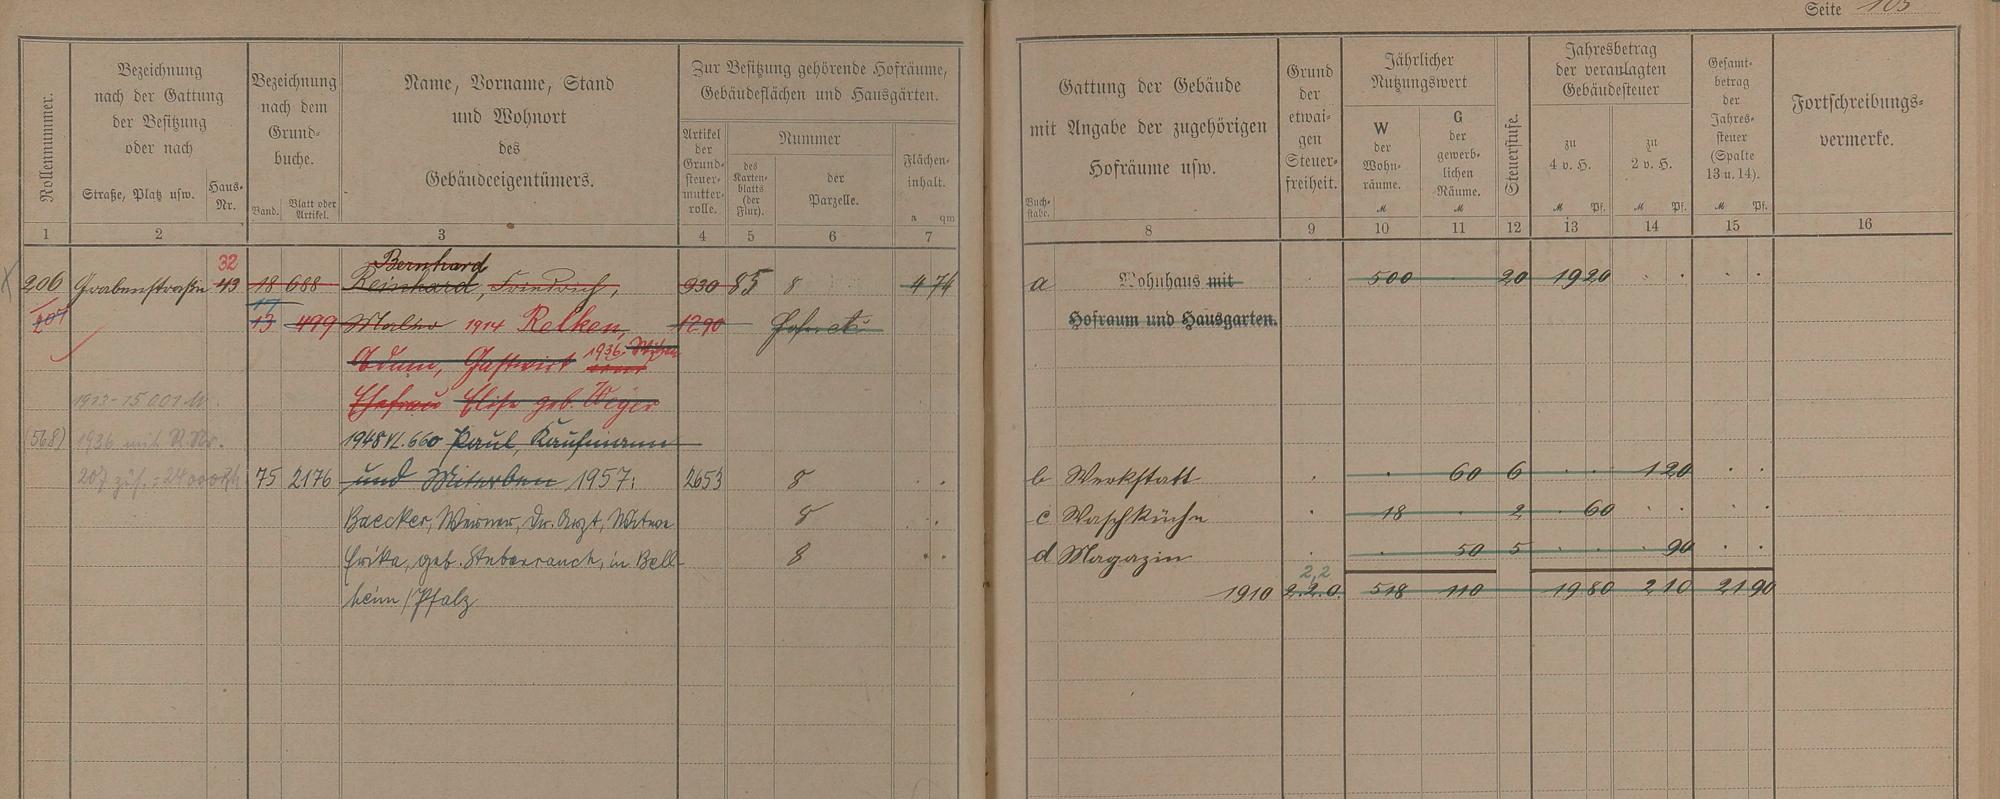 Seite 105
Rollennummer.
Bezeichnung
nach der Gattung
der Besitzung
oder nach
Straße, Platz usw.
Haus-
Nr.
Bezeichnung
nach dem
Grund-
buche.
Band.
Blatt oder
Artikel.
Name, Vorname, Stand
und Wohnort
des
Gebäudeeigentümers.
Zur Besitzung gehörende Hofräume,
Gebäudeflächen und Hausgärten.
Artikel
der
Grund-
steuer-
mutter-
rolle.
Nummer
des
Karten-
blatts
(der
Flur).
der
Parzelle.
Flächen-
inhalt.
a qm
Buch-
stabe.
Gattung der Gebäude
mit Angabe der zugehörigen
Hofräume usw.
Grund
der
etwai-
gen
Steuer-
freiheit.
Jährlicher
Nutzungswert
W
der
Wohn-
räume.
M
G
der
gewerb-
lichen
Räume.
M
Steuerstufe.
Jahresbetrag
der veranlagten
Gebäudesteuer
zu
4 v. H.
M Pf.
zu
2 v. H.
M Pf.
Gesamt-
betrag
der
Jahres-
steuer
(Spalte
13 u. 14).
M Pf.
Fortschreibungs-
vermerke.
1 2 3 4 5 6 7 8 9 10 11 12 13 14 15 16
32 Bernhard
206 Grabenstraße 43 18 688 Reinhard, Friedrich, 930 85 8 4 74 a Wohnhaus mit 500 20 19 20
207 17
13 499 Maler 1914 Relken, 1290 Hofr. etc. Hofraum und Hausgarten.
Adam, Gastwirt 1936. Witwe
1913-15001 M. Ehefrau Elise geb. Weger
(568) 1936 mit R. Nr. 1948 VI. 660 Paul, Kaufmann
207 zus. = 24000 75 2176 und Miterben 1957: 2653 8 b Werkstatt 60 6 1 20
Baecker, Werner, Dr. Arzt, Witwe 8 c Waschküche 18 2 60
Erika, geb. Steberrauch, in Bell- 8 d Magazin 50 5 90
2,2
heim/Pfalz 1910 2.2.0. 518 110 19 80 2 10 21 90